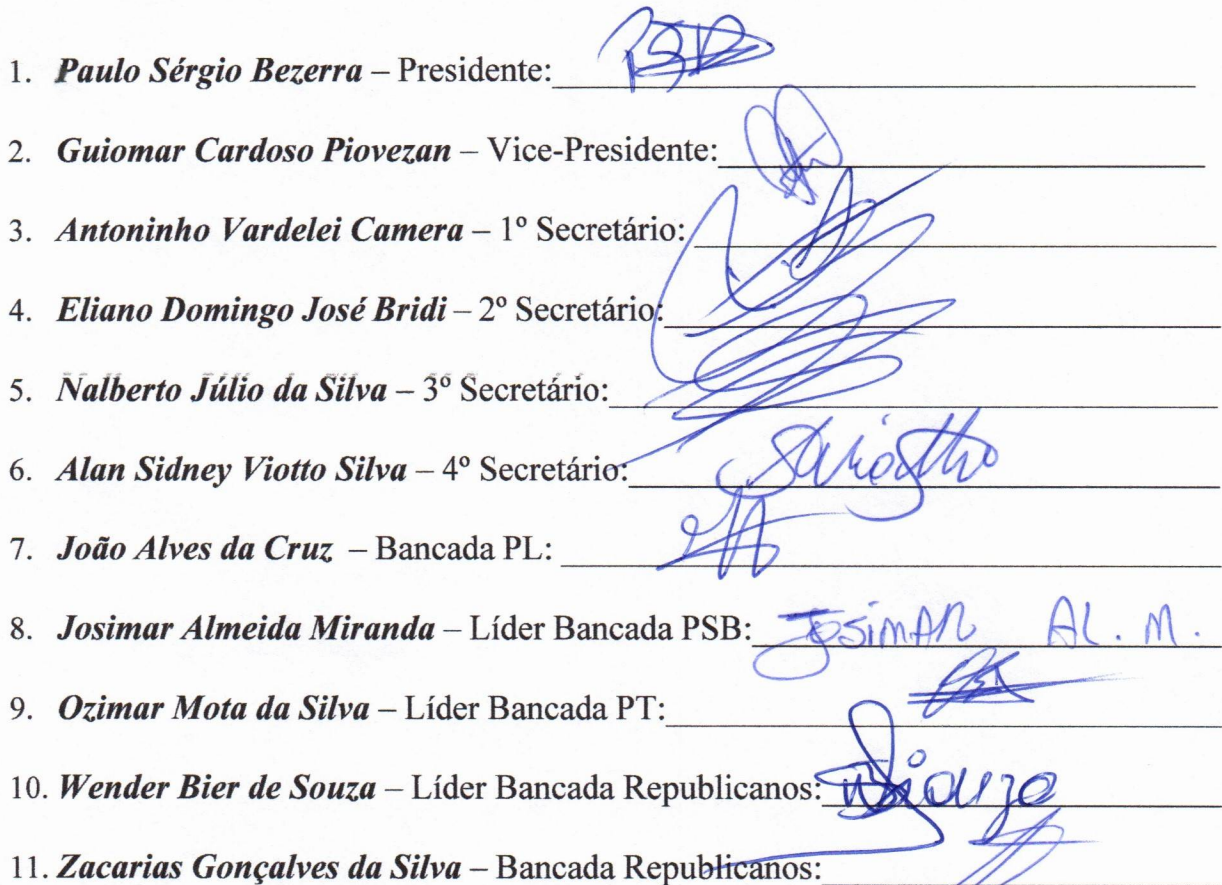 1. Paulo Sérgio Bezerra – Presidente:
2. Guiomar Cardoso Piovezan – Vice-Presidente:
3. Antoninho Vardelei Camera – 1º Secretário:
4. Eliano Domingo José Bridi – 2º Secretário:
5. Nalberto Júlio da Silva – 3º Secretário:
6. Alan Sidney Viotto Silva – 4º Secretário:
7. João Alves da Cruz – Bancada PL:
8. Josimar Almeida Miranda – Líder Bancada PSB: JOSIMAR AL. M.
9. Ozimar Mota da Silva – Líder Bancada PT:
10. Wender Bier de Souza – Líder Bancada Republicanos:
11. Zacarias Gonçalves da Silva – Bancada Republicanos: